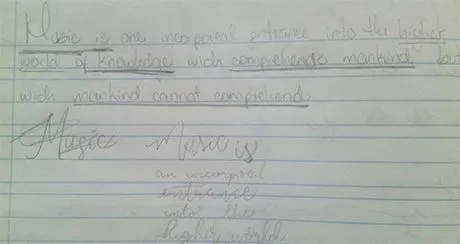 Music is one incorporeal entrance into the higher
world of knowledge wich comprehends mankind but
wich mankind cannot comprehend
Music Music is
an incorporeal
entrance
into the
higher world